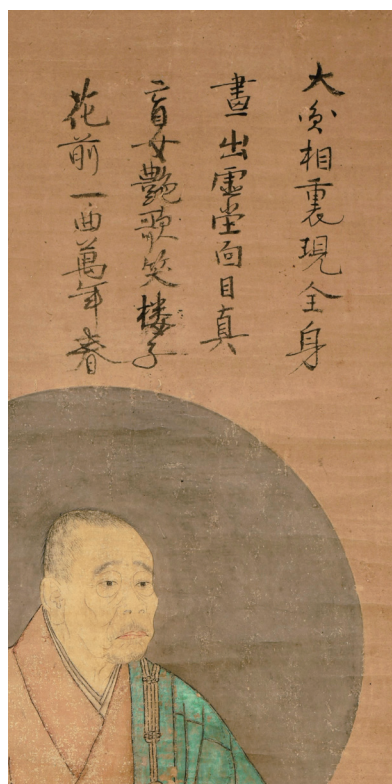 大圓相裏現全身
畫出虛堂面目真
盲女艷歌笑楼子
花前一曲萬年春